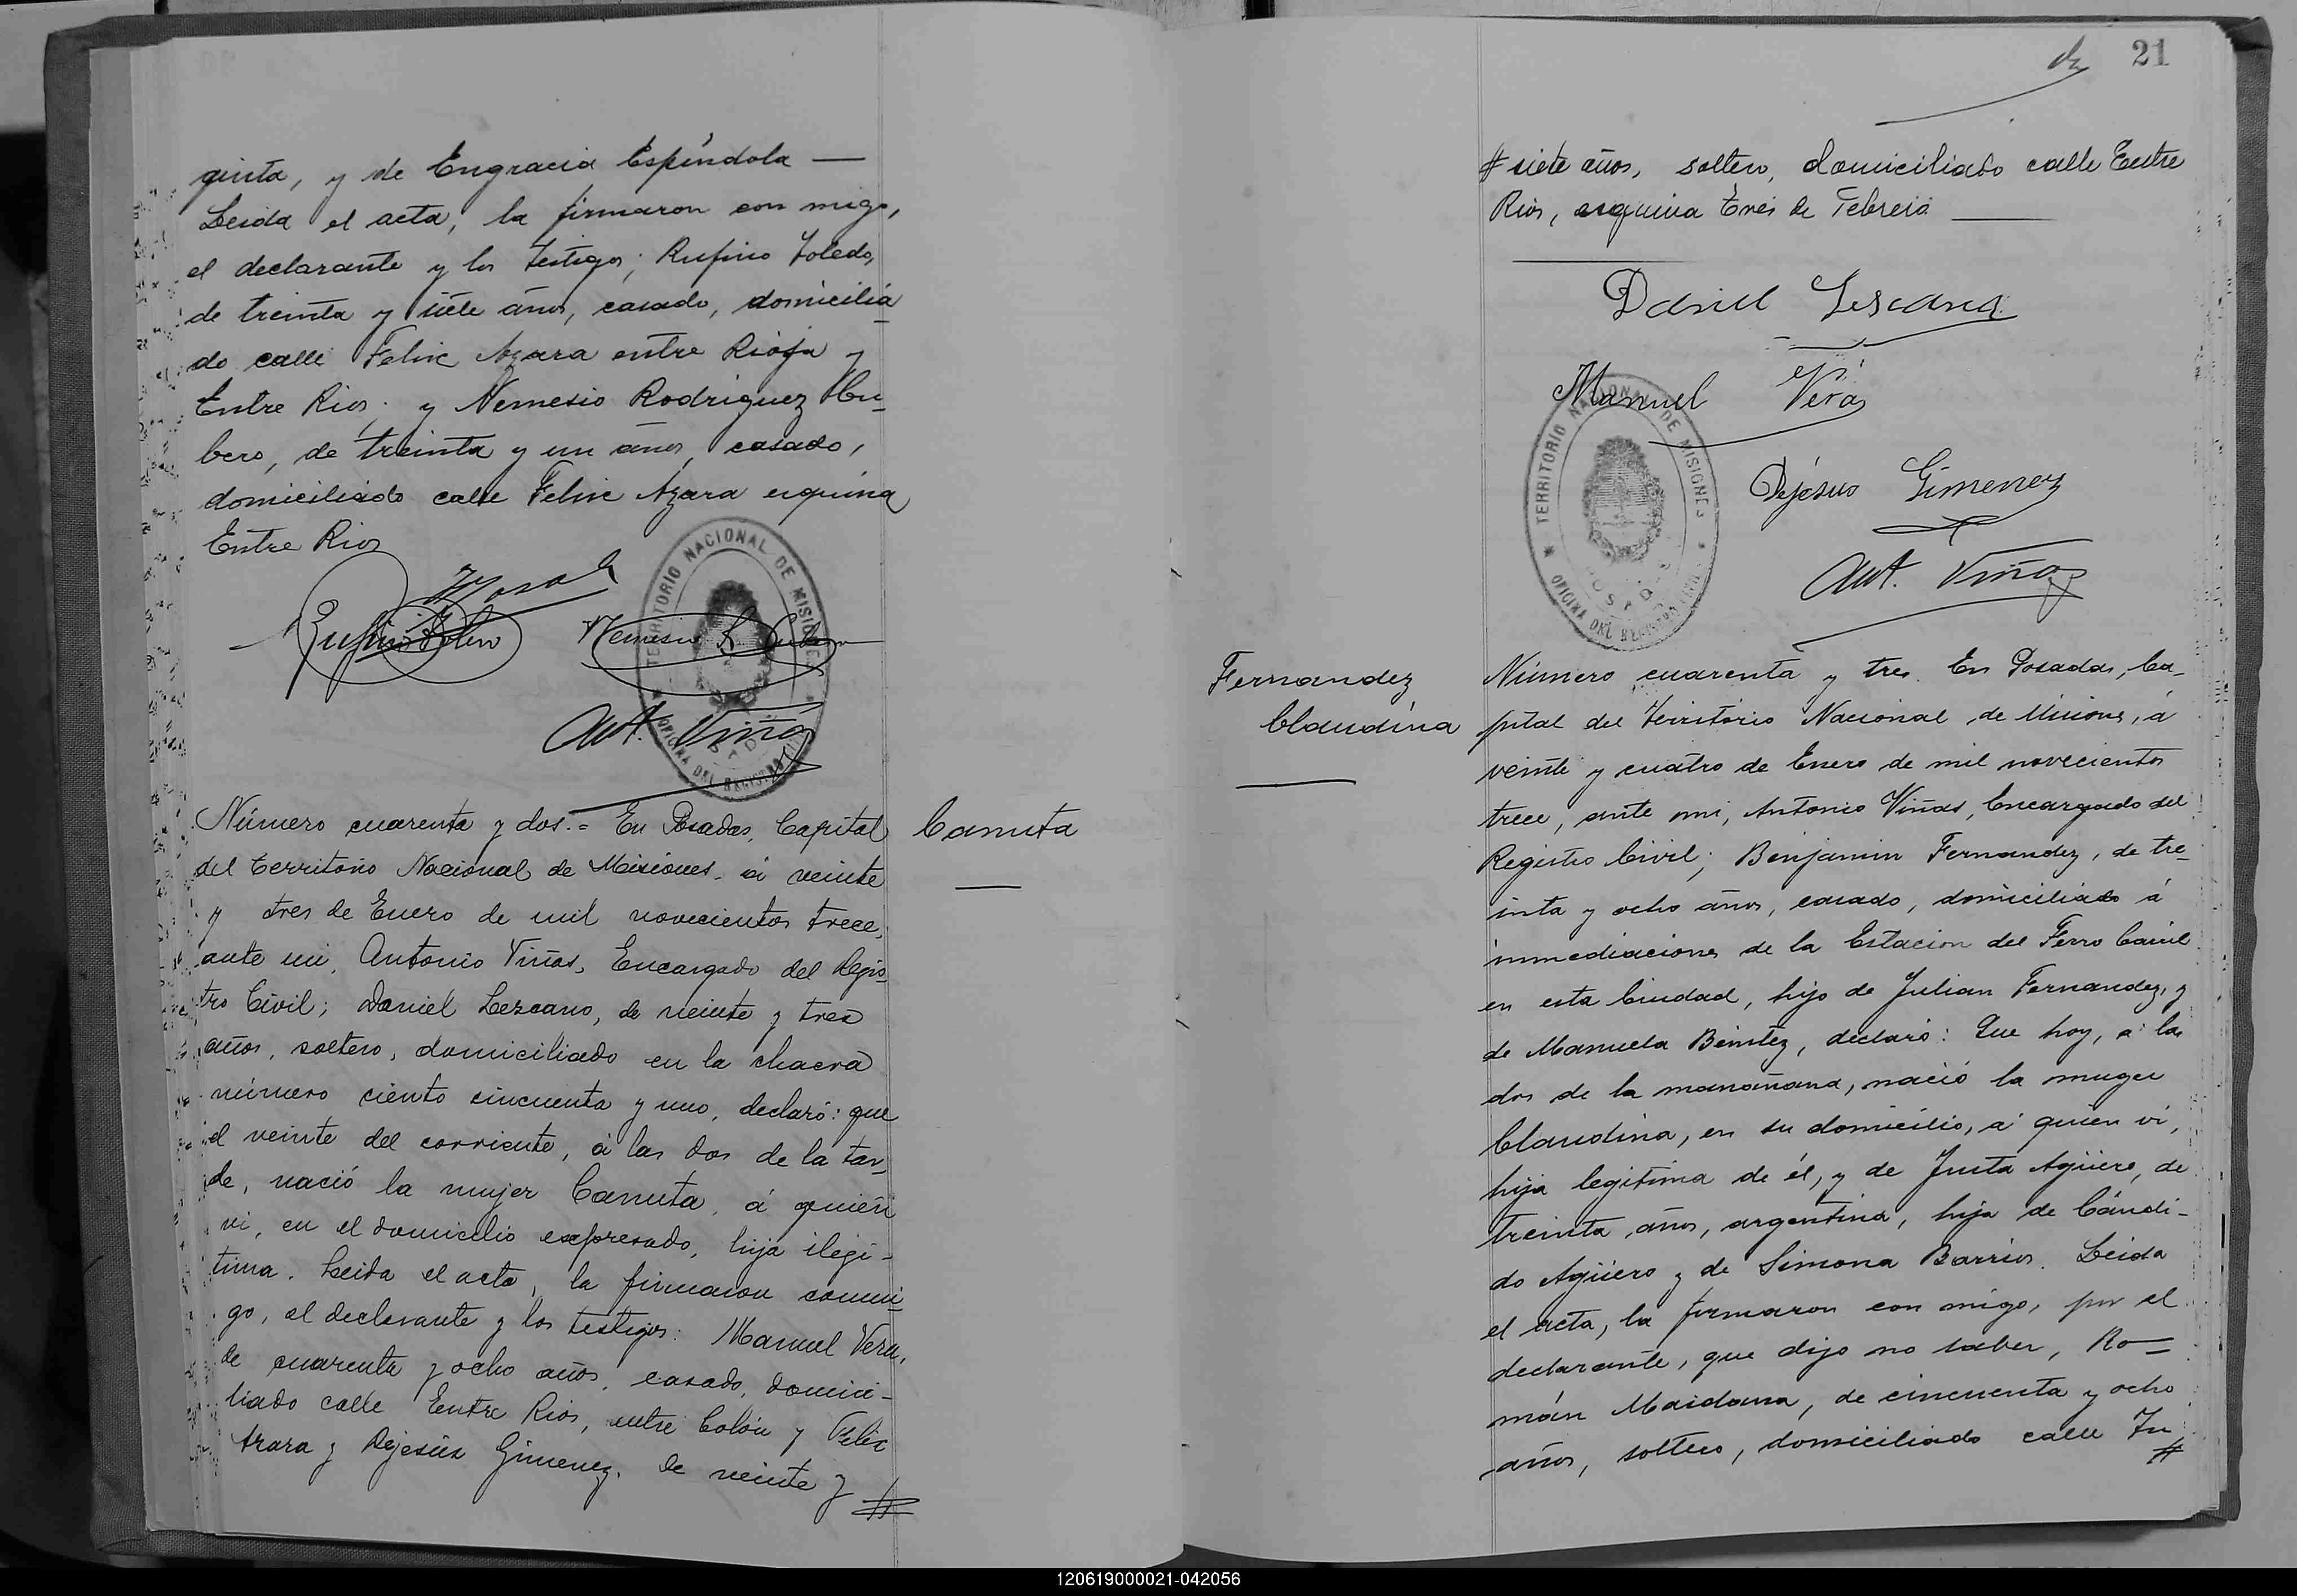 ginta, y de Engracia Espíndola —
Leida el acta, la firmaron con migo,
el declarante y los testigos; Rufino Toledo,
de treinta y siete años, casado, domicilia
do calle Felix Azara entre Rioja y
Entre Rios; y Nemesio Rodriguez Cu-
bero, de treinta y un años, casado,
domiciliado calle Felix Azara esquina
Entre Rios
Rufino Toledo
Nemesio R. Cubero
Ant. Viñas
TERRITORIO NACIONAL DE MISIONES
OFICINA DEL REGISTRO CIVIL
Canuta
Número cuarenta y dos.= En Posadas, Capital
del Territorio Nacional de Misiones, á veinte
y tres de Enero de mil novecientos trece,
ante mi, Antonio Viñas, Encargado del Regis-
tro Civil; Daniel Lezcano, de veinte y tres
años, soltero, domiciliado en la chacra
número ciento cincuenta y uno, declaró: que
el veinte del corriente, á las dos de la tar-
de, nació la mujer Canuta, á quien
vi, en el domicilio expresado, hija ilegi-
tima. Leida el acta, la firmaron conmi
go, el declarante y los testigos: Manuel Vera,
de cuarenta y ocho años, casado, domici-
liado calle Entre Rios, entre Colón y Felix
Azara y Dejesús Gimenez, de veinte y #
21
# siete años, soltero, domiciliado calle Entre
Rios, esquina Tres de Febrero
Daniel Lescano
Manuel Vera
Dejesus Gimenez
Ant. Viñas
TERRITORIO NACIONAL DE MISIONES
POSADAS
OFICINA DEL REGISTRO CIVIL
Fernandez
Claudina
Número cuarenta y tres. En Posadas, Ca-
pital del Territorio Nacional de Misiones, á
veinte y cuatro de Enero de mil novecientos
trece, ante mi, Antonio Viñas, Encargado del
Registro Civil; Benjamin Fernandez, de tre-
inta y ocho años, casado, domiciliado á
inmediaciones de la Estacion del Ferro Carril
en esta Ciudad, hijo de Julian Fernandez, y
de Manuela Benitez, declaró: Que hoy, a las
dos de la manañana, nació la muger
Claudina, en su domicilio, á quien vi,
hija legitima de él, y de Justa Agüero, de
treinta años, argentina, hija de Cándi-
do Agüero y de Simona Barrios. Leida
el acta, la firmaron con migo, por el
declarante, que dijo no saber, Ro-
mán Maidana, de cincuenta y ocho
años, soltero, domiciliado calle Ju
#
120619000021-042056